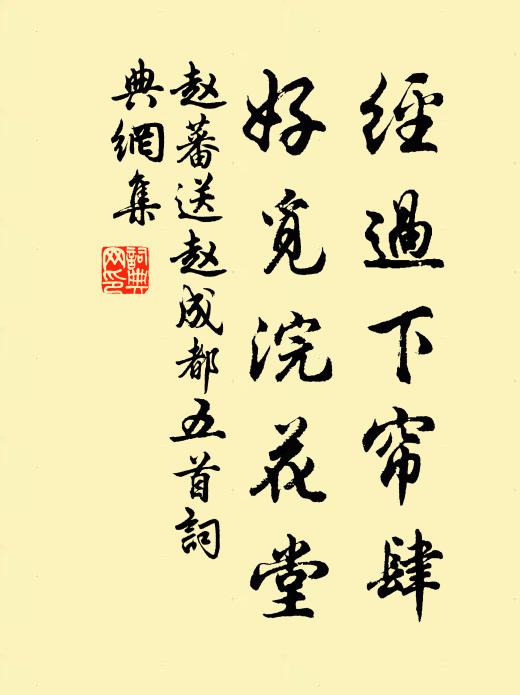 經過下帘肆
好覓浣花堂
赵蕃送赵成都五首詞
典網集
詞典
网印